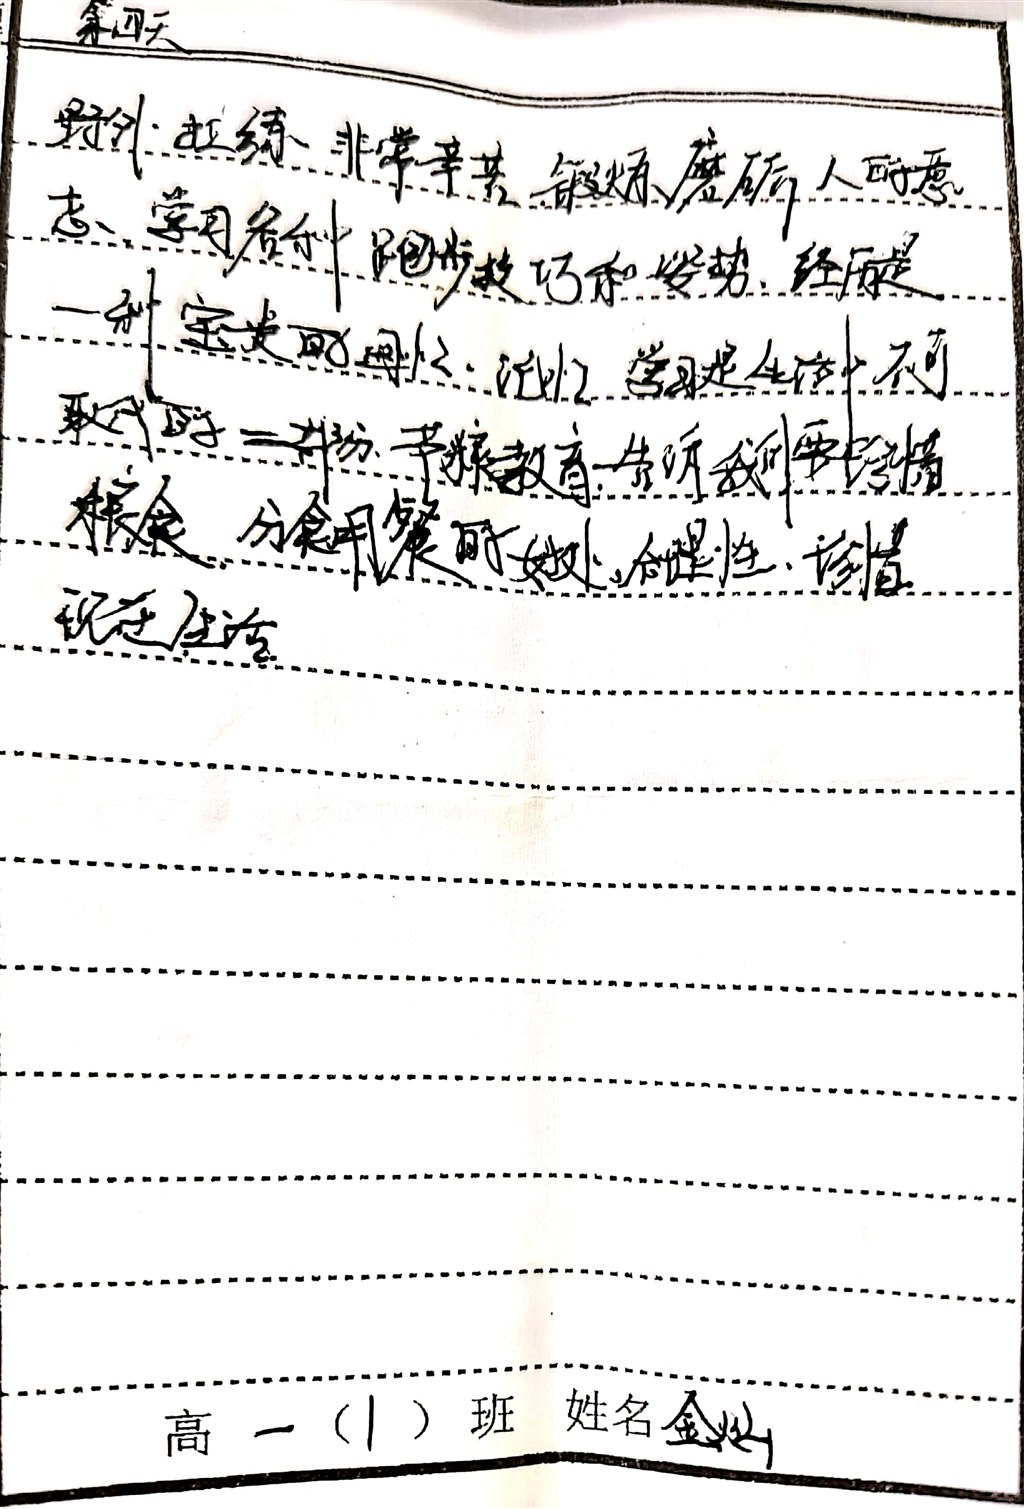 第四天
野外拉练、非常辛苦、锻炼、磨砺人的意
志、学习各种跑步技巧和姿势、经历是
一种宝贵的回忆、记忆、学习是生活中不可
取代的一部份、节粮教育、告诉我们要珍惜
粮食、分食用餐的好处、合理性、珍惜
现在生活
高一（1）班 姓名金灿